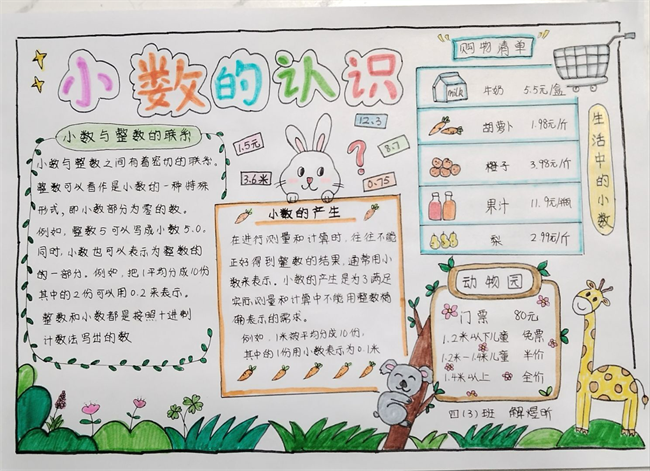 小数的认识
小数与整数的联系
小数与整数之间有着密切的联系。
整数可以看作是小数的一种特殊
形式，即小数部分为零的数。
例如，整数5可以写成小数5.0。
同时，小数也可以表示为整数的
的一部分。例如，把1平均分成10份
其中的2份可以用0.2来表示。
整数和小数都是按照十进制
计数法写出的数
1.5元
3.6米
12.3
8.7
0.75
?
小数的产生
在进行测量和计算时，往往不能
正好得到整数的结果，通常用小
数来表示。小数的产生是为3满足
实际测量和计算中不能用整数精
确表示的需求。
例如：1米的平均分成10份；
其中的1份用小数表示为0.1米
购物清单
milk 牛奶 5.5元/盒
胡萝卜 1.98元/斤
橙子 3.98元/斤
果汁 11.9元/瓶
梨 2.99元/斤
生活中的小数
动物园
门票 80元
1.2米以下儿童 免票
1.2米-1.4米儿童 半价
1.4米以上 全价
四(3)班 解煜昕